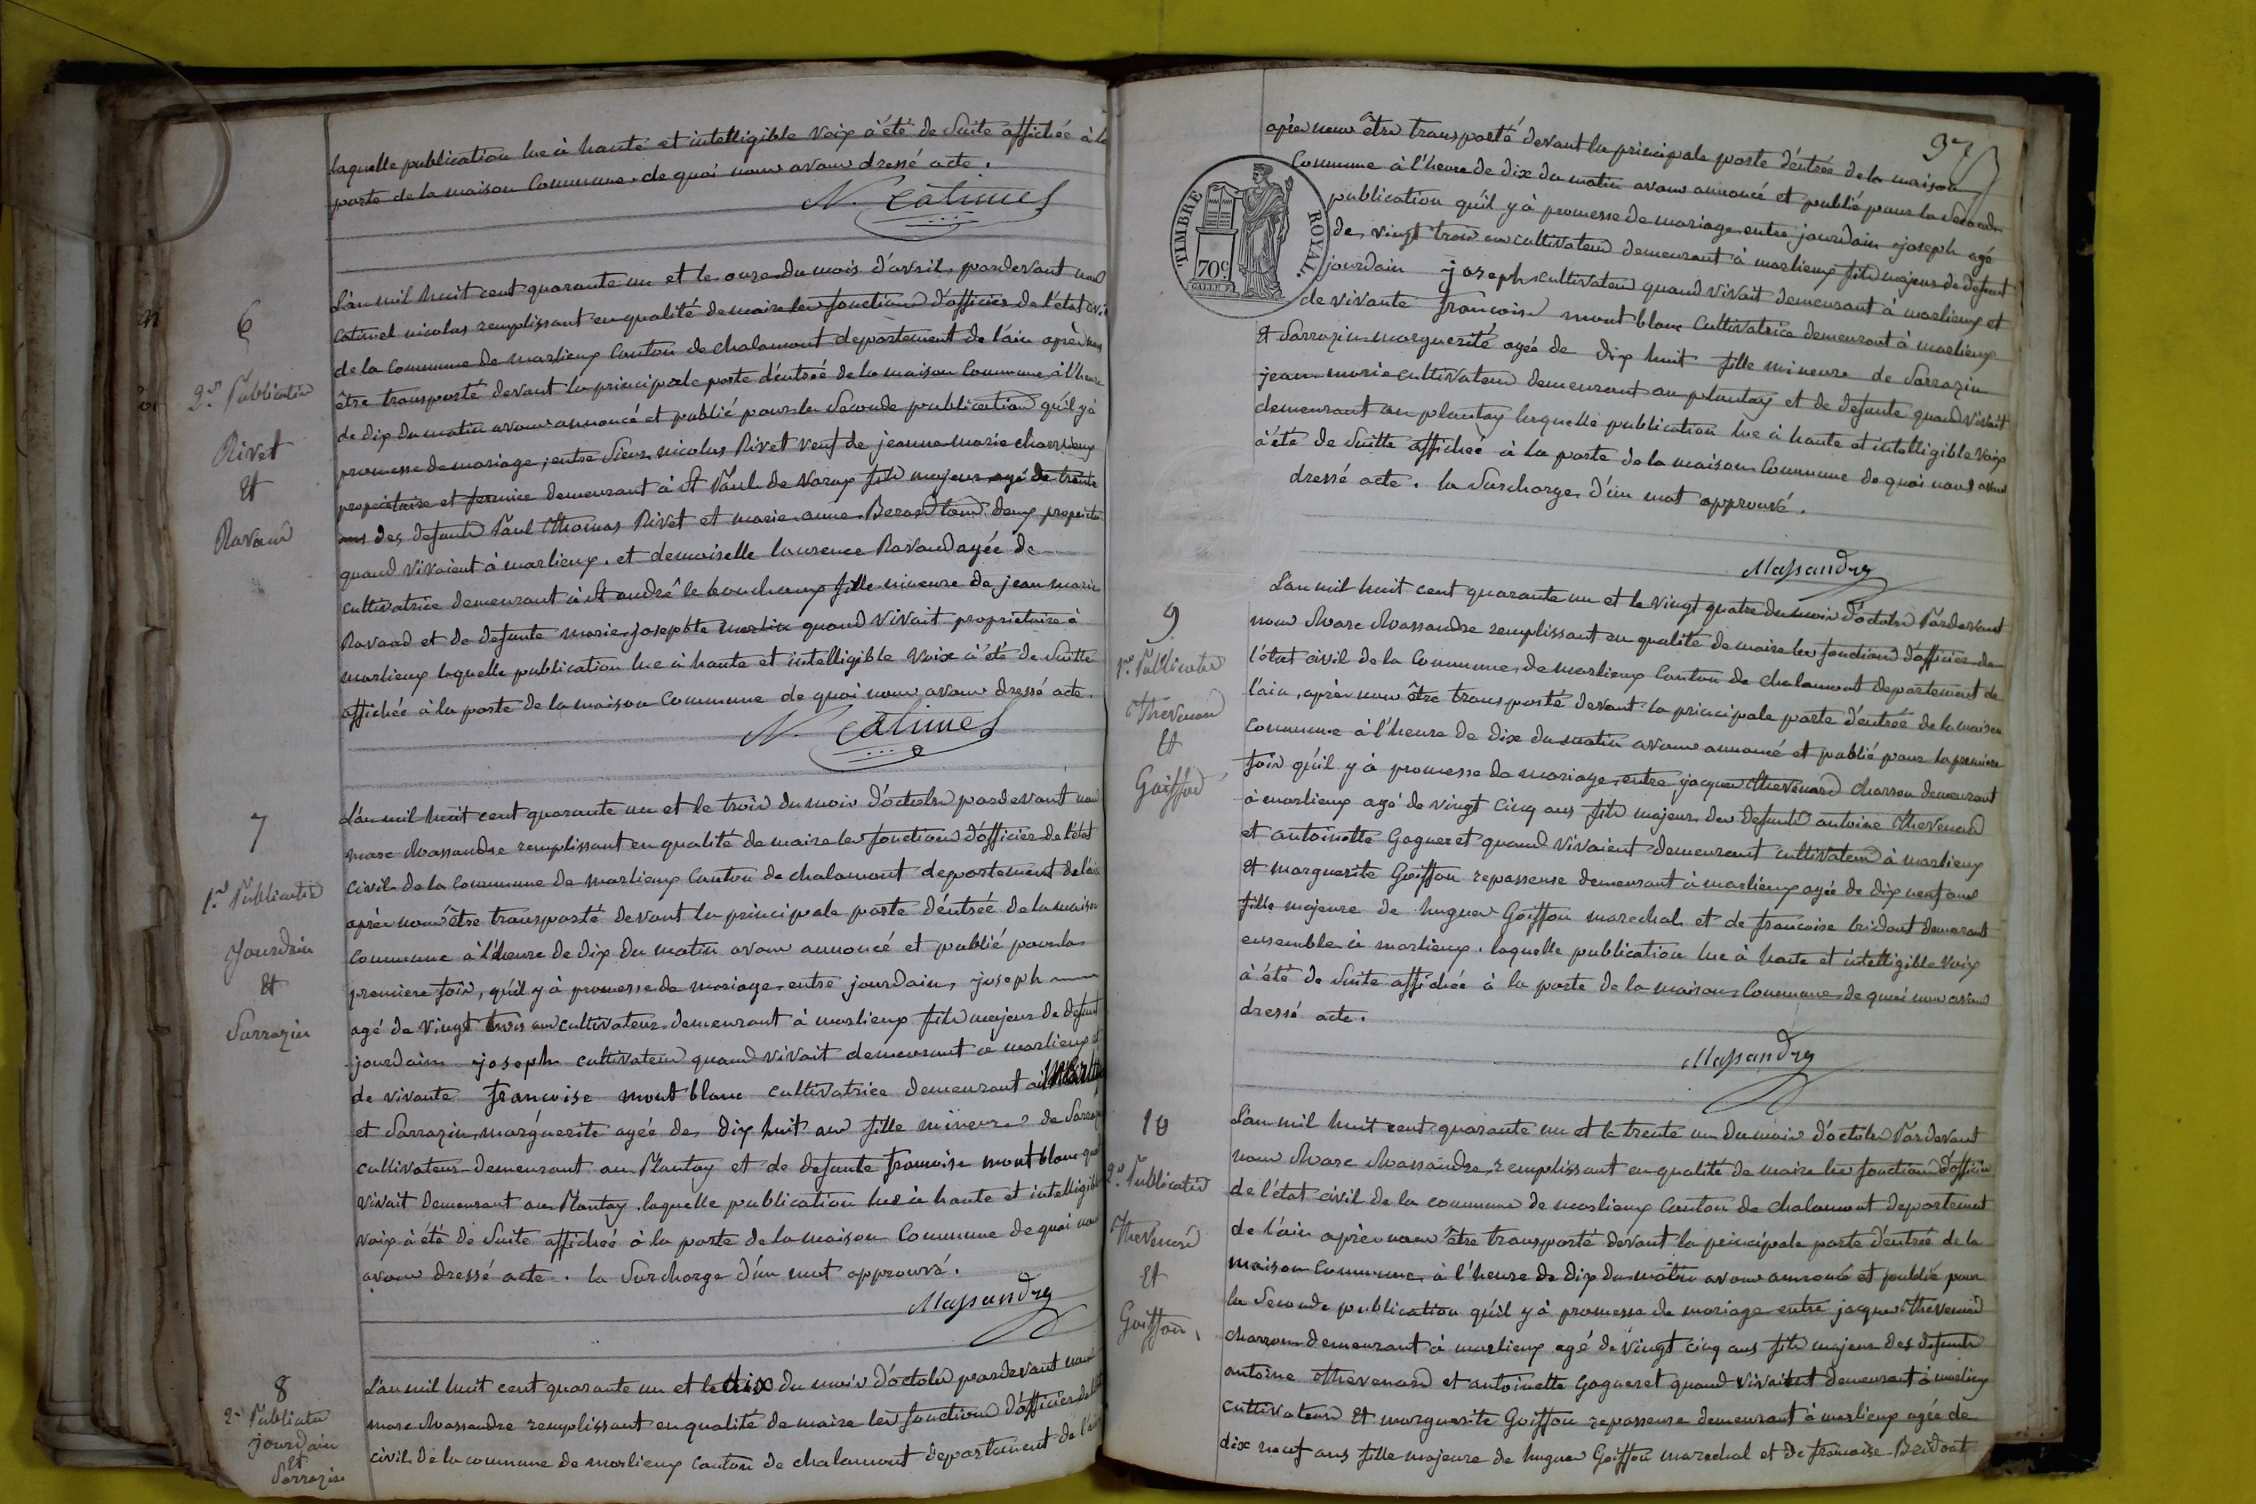 laquelle publication lue à haute et intelligible voix à été de Suite affichée à la
porte de la maison Commune. de quoi nous avons dressé acte.
N. Catimel
6
2e Publication
Rivet
Et
Ravaud
L'an mil huit cent quarante un et le onze du mois d'avril, pardevant nous
Catimel nicolas remplissant en qualité de maire les fonctions d'officier de l'état civil
de la Commune de marlieux Canton de chalamont departement de l'ain après nous
être transporté devant la principale porte d'entrée de la maison Commune à l'heure
de dix du matin avons annoncé et publié pour la Seconde publication qu'il y à
promesse de mariage, entre Sieur nicolas Rivet veuf de jeanne marie
propriétaire et demeurant à St Paul de Varax fils majeur agé de trente
ans des defunts Paul Thomas Rivet et marie anne Berard tous deux
quand vivaient à marlieux. et demoiselle laurence Ravaud agée de
cultivatrice demeurant à St andré le bouchoux fille mineure de jean marie
Ravaud et de defunte marie josephte quand vivait propriétaire à
marlieux laquelle publication lue à haute et intelligible voix à été de Suitte
affichée à la porte de la maison Commune de quoi nous avons dressé acte.
N. Catimel
7
1re Publication
Jourdain
Et
Sarrazin
L'an mil huit cent quarante un et le trois du mois d'octobre pardevant nous
marc Massandre remplissant en qualité de maire les fonctions d'officier de l'état
Civil de la Commune de marlieux Canton de chalamont departement de l'ain
après nous être transporté devant la principale porte d'entrée de la maison
Commune à l'heure de dix du matin avons annoncé et publié pour la
premiere fois, qu'il y à promesse de mariage entre jourdain, joseph
agé de vingt trois ans cultivateur demeurant à marlieux fils majeur de defunt
jourdain joseph cultivateur quand vivait demeurant a marlieux et
de vivante francoise mont blanc cultivatrice demeurant à
et Sarrazin, marguerite agée de dix huit ans fille mineure de Sarrazin
cultivateur demeurant au Plantay et de defunte francoise mont blanc quand
vivait demeurant au Plantay. laquelle publication lue à haute et intelligible
voix à été de Suite affichée à la porte de la maison Commune de quoi nous
avons dressé acte. la Surcharge d'un mot approuvé.
Massandre
8
2e Publication
jourdain
et
Sarrazin
L'an mil huit cent quarante un et le dix du mois d'octobre pardevant nous
marc Massandre remplissant en qualité de maire les fonctions d'officier de l'état
civil de la commune de marlieux canton de chalamont departement de l'ain
37
TIMBRE ROYAL.
70c.
après nous être transporté devant la principale porte d'entrée de la maison
Commune à l'heure de dix du matin avons annoncé et publié pour la Seconde
publication qu'il y à promesse de mariage, entre jourdain joseph agé
de vingt trois ans cultivateur demeurant à marlieux fils majeur de defunt
jourdain joseph cultivateur quand vivait demeurant à marlieux et
de vivante francoise mont blanc cultivatrice demeurant à marlieux
Et Sarrazin marguerite agée de dix huit fille mineure de Sarrazin
jean marie cultivateur demeurant au plantay et de defunte quand vivait
demeurant au plantay laquelle publication lue à haute et intelligible voix
à été de Suitte affichée à la porte de la maison Commune de quoi nous avons
dressé acte. la Surcharge d'un mot approuvé.
Massandre
9
1re Publication
Thevenard
Et
Goiffon
L'an mil huit cent quarante un et le vingt quatre du mois d'octobre Pardevant
nous Marc Massandre remplissant en qualité de maire les fonctions d'officier de
l'état civil de la Commune, de marlieux Canton de chalamont departement de
l'ain, après nous être transporté devant la principale porte d'entrée de la maison
Commune à l'heure de dix du matin avons annoncé et publié pour la premiere
fois qu'il y à promesse de mariage, entre jacques Thevenard charron demeurant
à marlieux agé de vingt cinq ans fils majeur des defunts antoine Thevenard
et antoinette Gagneret quand vivaient demeurant cultivateurs à marlieux
Et marguerite Goiffon repasseuse demeurant à marlieux agée de dix neuf ans
fille majeure de hugues Goiffon marechal et de francoise bridont demeurant
ensemble à marlieux. laquelle publication lue à haute et intelligible voix
à été de Suite affichée à la porte de la maison Commune de quoi nous avons
dressé acte.
Massandre
10
2e Publication
Thevenard
Et
Goiffon
L'an mil huit cent quarante un et le trente un du mois d'octobre Pardevant
nous Marc Massandre remplissant en qualité de maire les fonctions d'officier
de l'état civil de la commune de marlieux Canton de chalamont departement
de l'ain après nous être transporté devant la principale porte d'entrée de la
maison Commune, à l'heure de dix du matin avons annoncé et publié pour
la Seconde publication qu'il y à promesse de mariage entre jacques Thevenard
charron demeurant à marlieux agé de vingt cinq ans fils majeur des defunts
antoine Thevenard et antoinette Gagneret quand vivaient demeurant à marlieux
cultivateurs Et marguerite Goiffon repasseuse demeurant à marlieux agée de
dix neuf ans fille majeure de hugues Goiffon marechal et de francoise Bridont